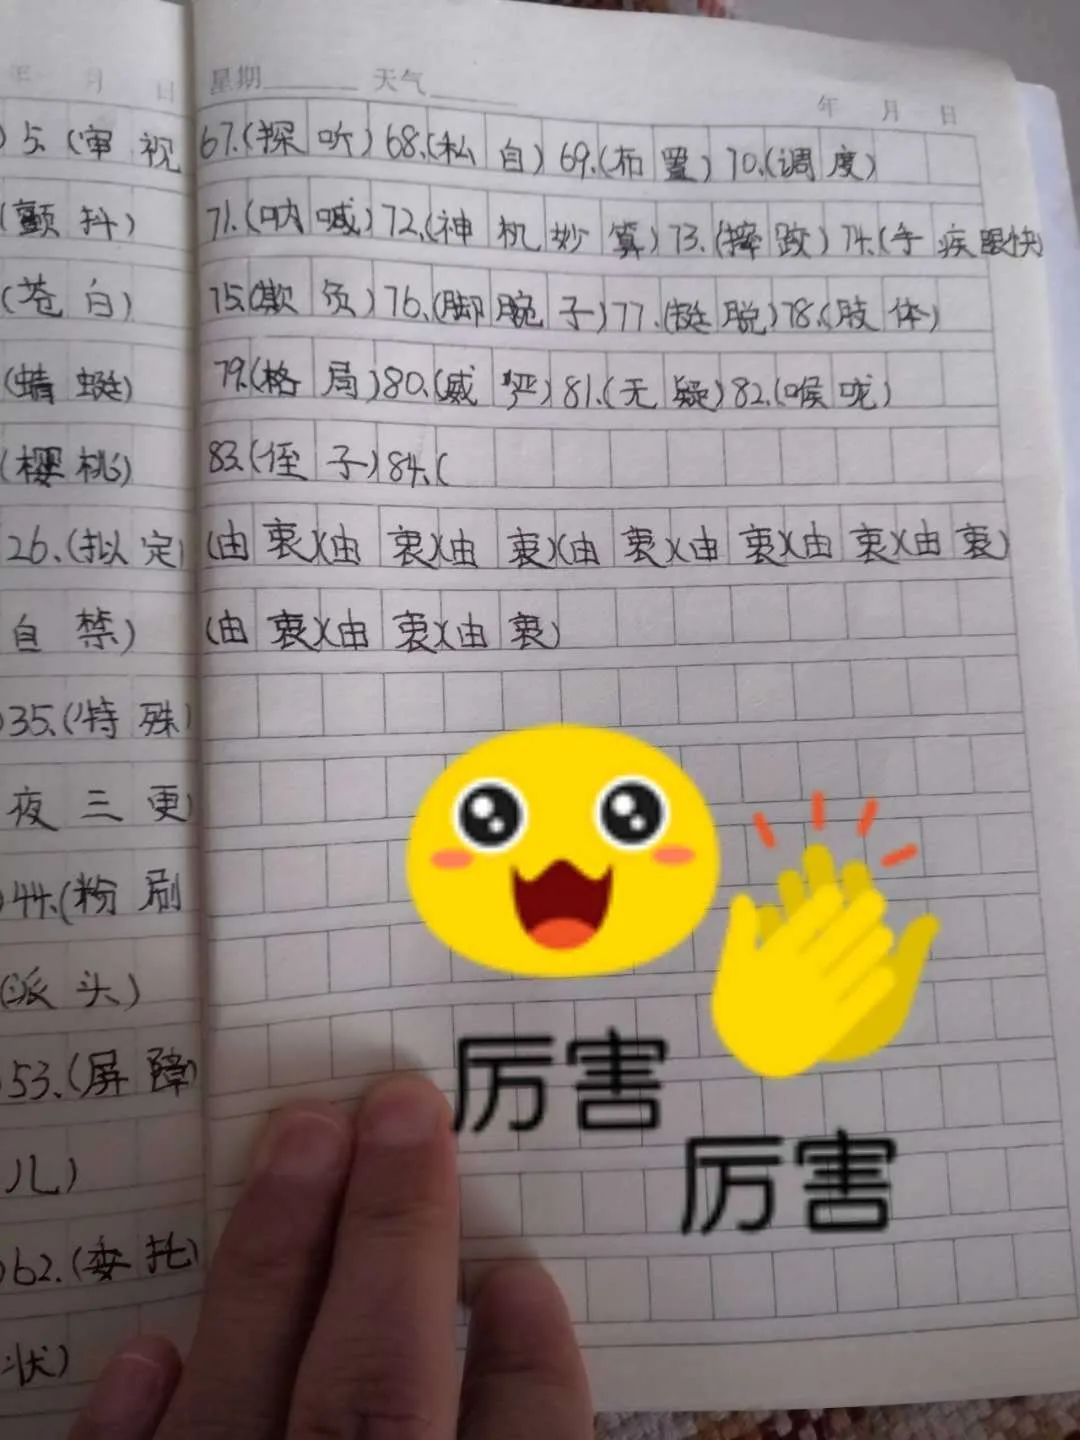 年 月 日
星期 天气
年 月 日
)5.(审视
(颤抖)
(苍白)
(蜻蜓)
(樱桃)
26.(拟定)
自禁)
)35.(特殊)
夜三更
)44.(粉刷
(派头)
)53.(屏障)
儿)
)62.(委托)
状)
67.(探听)68.(私自)69.(布置)70.(调度)
71.(呐喊)72.(神机妙算)73.(摔跤)74.(手疾眼快)
75.(欺负)76.(脚腕子)77.(挺脱)78.(肢体)
79.(格局)80.(威严)81.(无疑)82.(喉咙)
83.(侄子)84.(
(由衷)(由衷)(由衷)(由衷)(由衷)(由衷)(由衷)
(由衷)(由衷)(由衷)
厉害
厉害